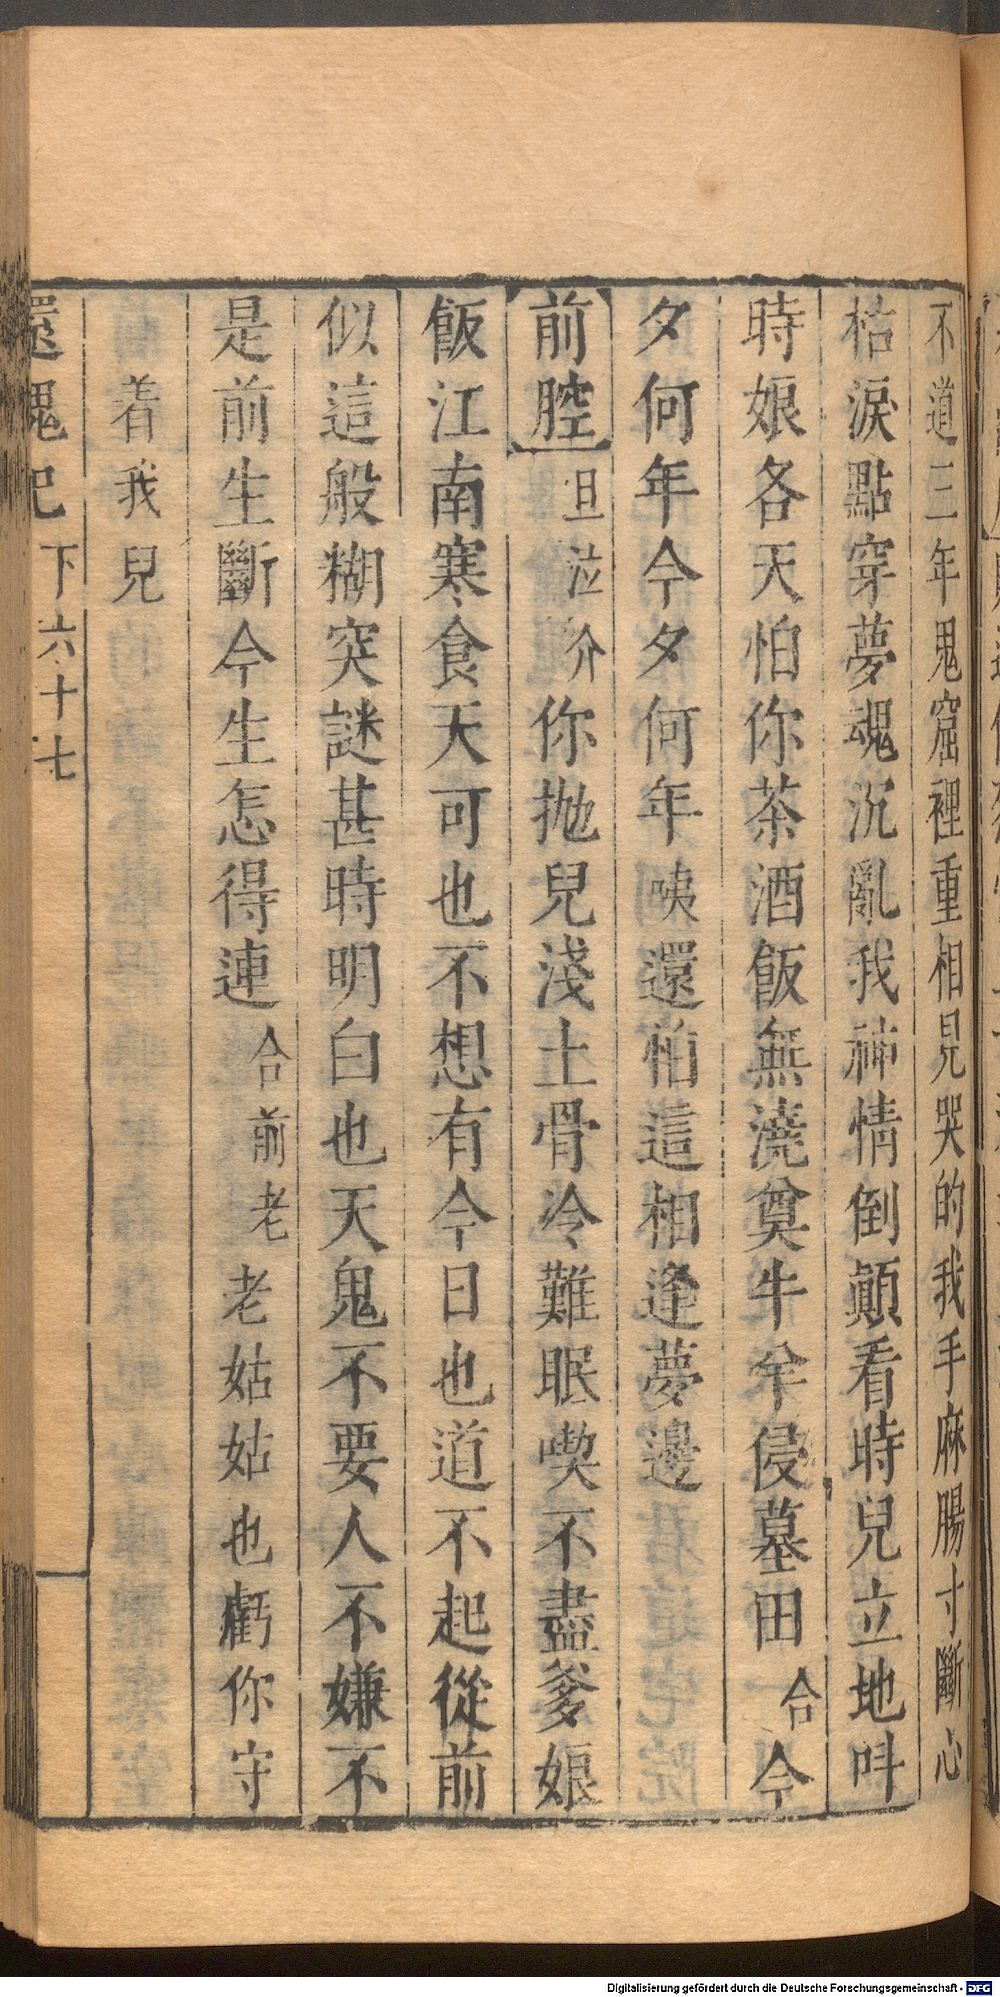 不道三年鬼窟裡重相見哭的我手麻腸寸斷心
枯淚點穿夢魂沉亂我神情倒顛看時兒立地叫
時娘各天怕你茶酒飯無澆奠牛羊侵墓田合今
夕何年今夕何年咦還怕這相逢夢邊
前腔旦泣介你抛兒淺土骨冷難眠喫不盡爹娘
飯江南寒食天可也不想有今日也道不起從前
似這般糊突謎甚時明白也天鬼不要人不嫌不
是前生斷今生怎得連合前老老姑姑也虧你守
着我兒
還魂記 下六十七
Digitalisierung gefördert durch die Deutsche Forschungsgemeinschaft - DFG